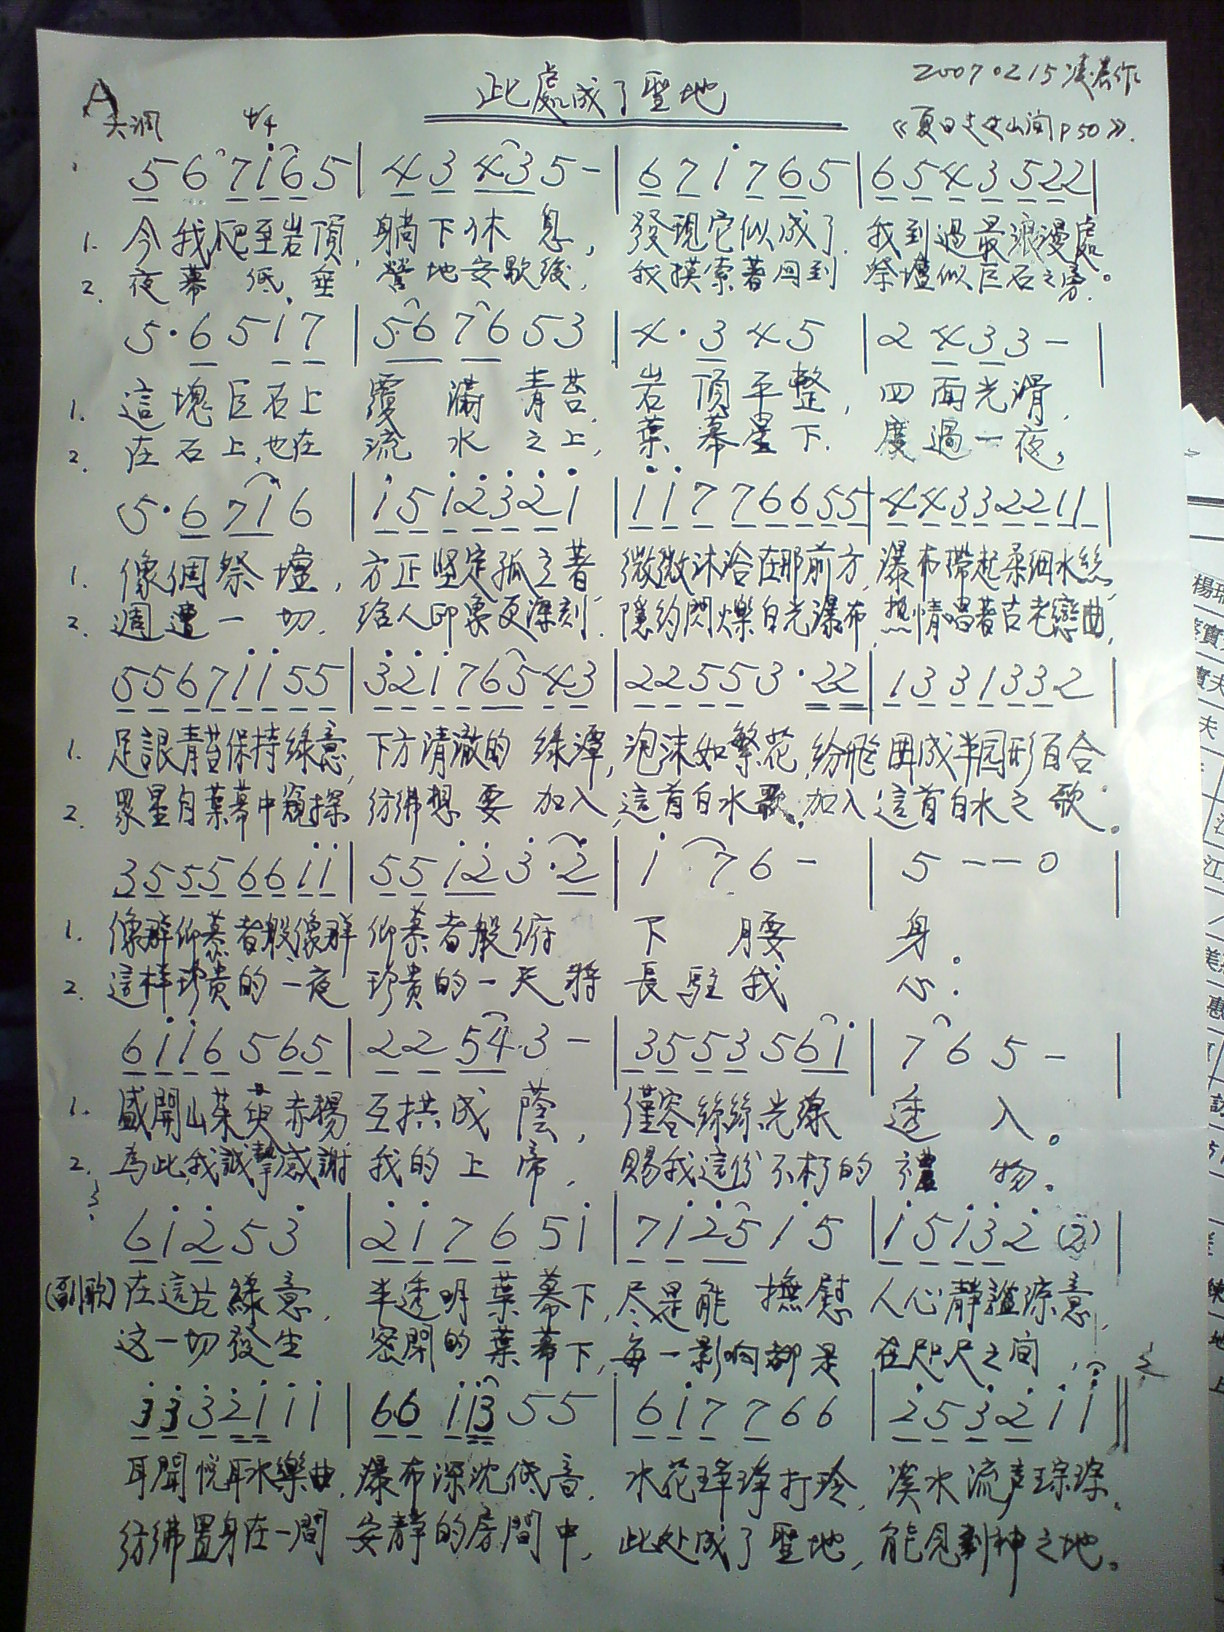 此處成了聖地
2007 02 15 凌
A 大調 4/4
《夏日走过山间 P50》
5 6 7 1 6 5 | 4 3 4 3 5 - | 6 7 1 7 6 5 | 6 5 4 3 5 2 2 |
1. 今我爬至岩頂, 躺下休息, 發現它似成了 我到過最浪漫處。
2. 夜幕低垂 營地安歇後, 我摸索著回到 祭壇似巨石之旁.
5·6 5 1 7 | 5 6 7 6 5 3 | 4·3 4 5 | 2 4 3 3 - |
1. 這塊巨石上 覆滿青苔, 岩頂平整, 四面光滑,
2. 在石上,也在 流水之上, 葉幕星下. 度過一夜,
5·6 7 1 6 | 1 5 1 2 3 2 1 | 1 1 7 7 6 6 5 5 | 4 4 3 3 2 2 1 1 |
1. 像個祭壇, 方正堅定孤立著, 微微沐浴在那前方, 瀑布帶起柔細水絲,
2. 週遭一切. 給人印象更深刻. 隱約閃爍白光瀑布, 熱情唱著古老戀曲,
5 5 6 7 1 1 5 5 | 3 2 1 7 6 5 4 3 | 2 2 5 5 3·2 2 | 1 3 3 1 3 3 2
1. 足讓青苔保持綠意, 下方清澈的 綠潭, 泡沫如繁花, 紛飛 圍成半圆形百合
2. 眾星自葉幕中窺探 彷彿想要 加入 這首白水歌, 加入 這首白水之歌。
3 5 5 5 6 6 1 1 | 5 5 1 2 3·2 | 1 7 6 - | 5 - - 0
1. 像群仰慕者般,像群 仰慕者般俯 下腰 身。
2. 這样珍貴的一夜 珍貴的一天將 長駐我 心.
6 1 1 6 5 6 5 | 2 2 5 4·3 - | 3 5 5 3 5 6 1 | 7 6 5 - |
1. 盛開山茱萸赤楊 互拱成蔭, 僅容絲絲光線 透入。
2. 為此,我誠摯感謝 我的上帝, 賜我這份不朽的 禮物。
6 1 2 5 3 | 2 1 7 6 5 1 | 7 1 2 5 1 5 | 1 5 1 3 2 (2) |
(副歌) 在這片綠意, 半透明葉幕下, 尽是能撫慰 人心靜謐涼意,
这一切發生 密閉的葉幕下, 每一影响都是 在咫尺之间,
3 3 3 2 1 1 1 | 6 6 1 1 3 5 5 | 6 1 7 7 6 6 | 2 5 3 2 1 1 ||
耳聞悅耳水樂曲, 瀑布深沈低音. 水花琤琤打玲, 溪水流声琮琮。
彷彿置身在一間 安靜的房間中, 此处成了聖地, 能見到神之地。